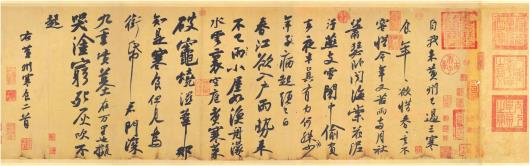 自我來黃州已過三寒
食年年欲惜春春去不
容惜今年又苦雨兩月秋
蕭瑟卧聞海棠花泥
汙燕支雪闇中偷負
去夜半真有力何殊病少
年子病起頭已白
春江欲入戶雨勢來
不已雨小屋如漁舟濛濛
水雲裏空庖煮寒菜
破竈燒濕葦那
知是寒食但見烏
銜帋君門深
九重墳墓在万里也擬
哭塗窮死灰吹不
起
右黃州寒食二首